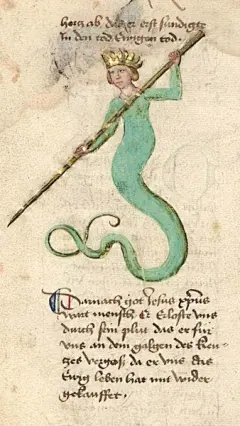 hoch ab das er erst sundigte
In den tod Ewigen tod.
Darnach ijot Jesus xpnus
wart mensch Er Erloste vns
durch sein plut das er fur
vns an dem galgen des kreu-
tzes vergoss da er vns das
Ewig leben hat mit wider
gekauffet.